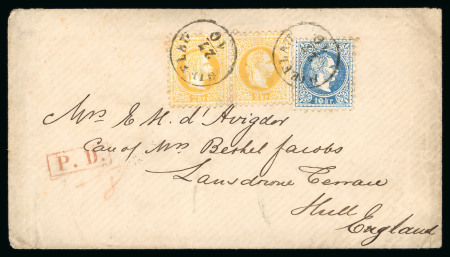 27
10
10 kr.
Mrs E H. d'Avigdor
Care of Mrs Bethel Jacobs
P. D.
Lansdowne Terrace
Hull
England